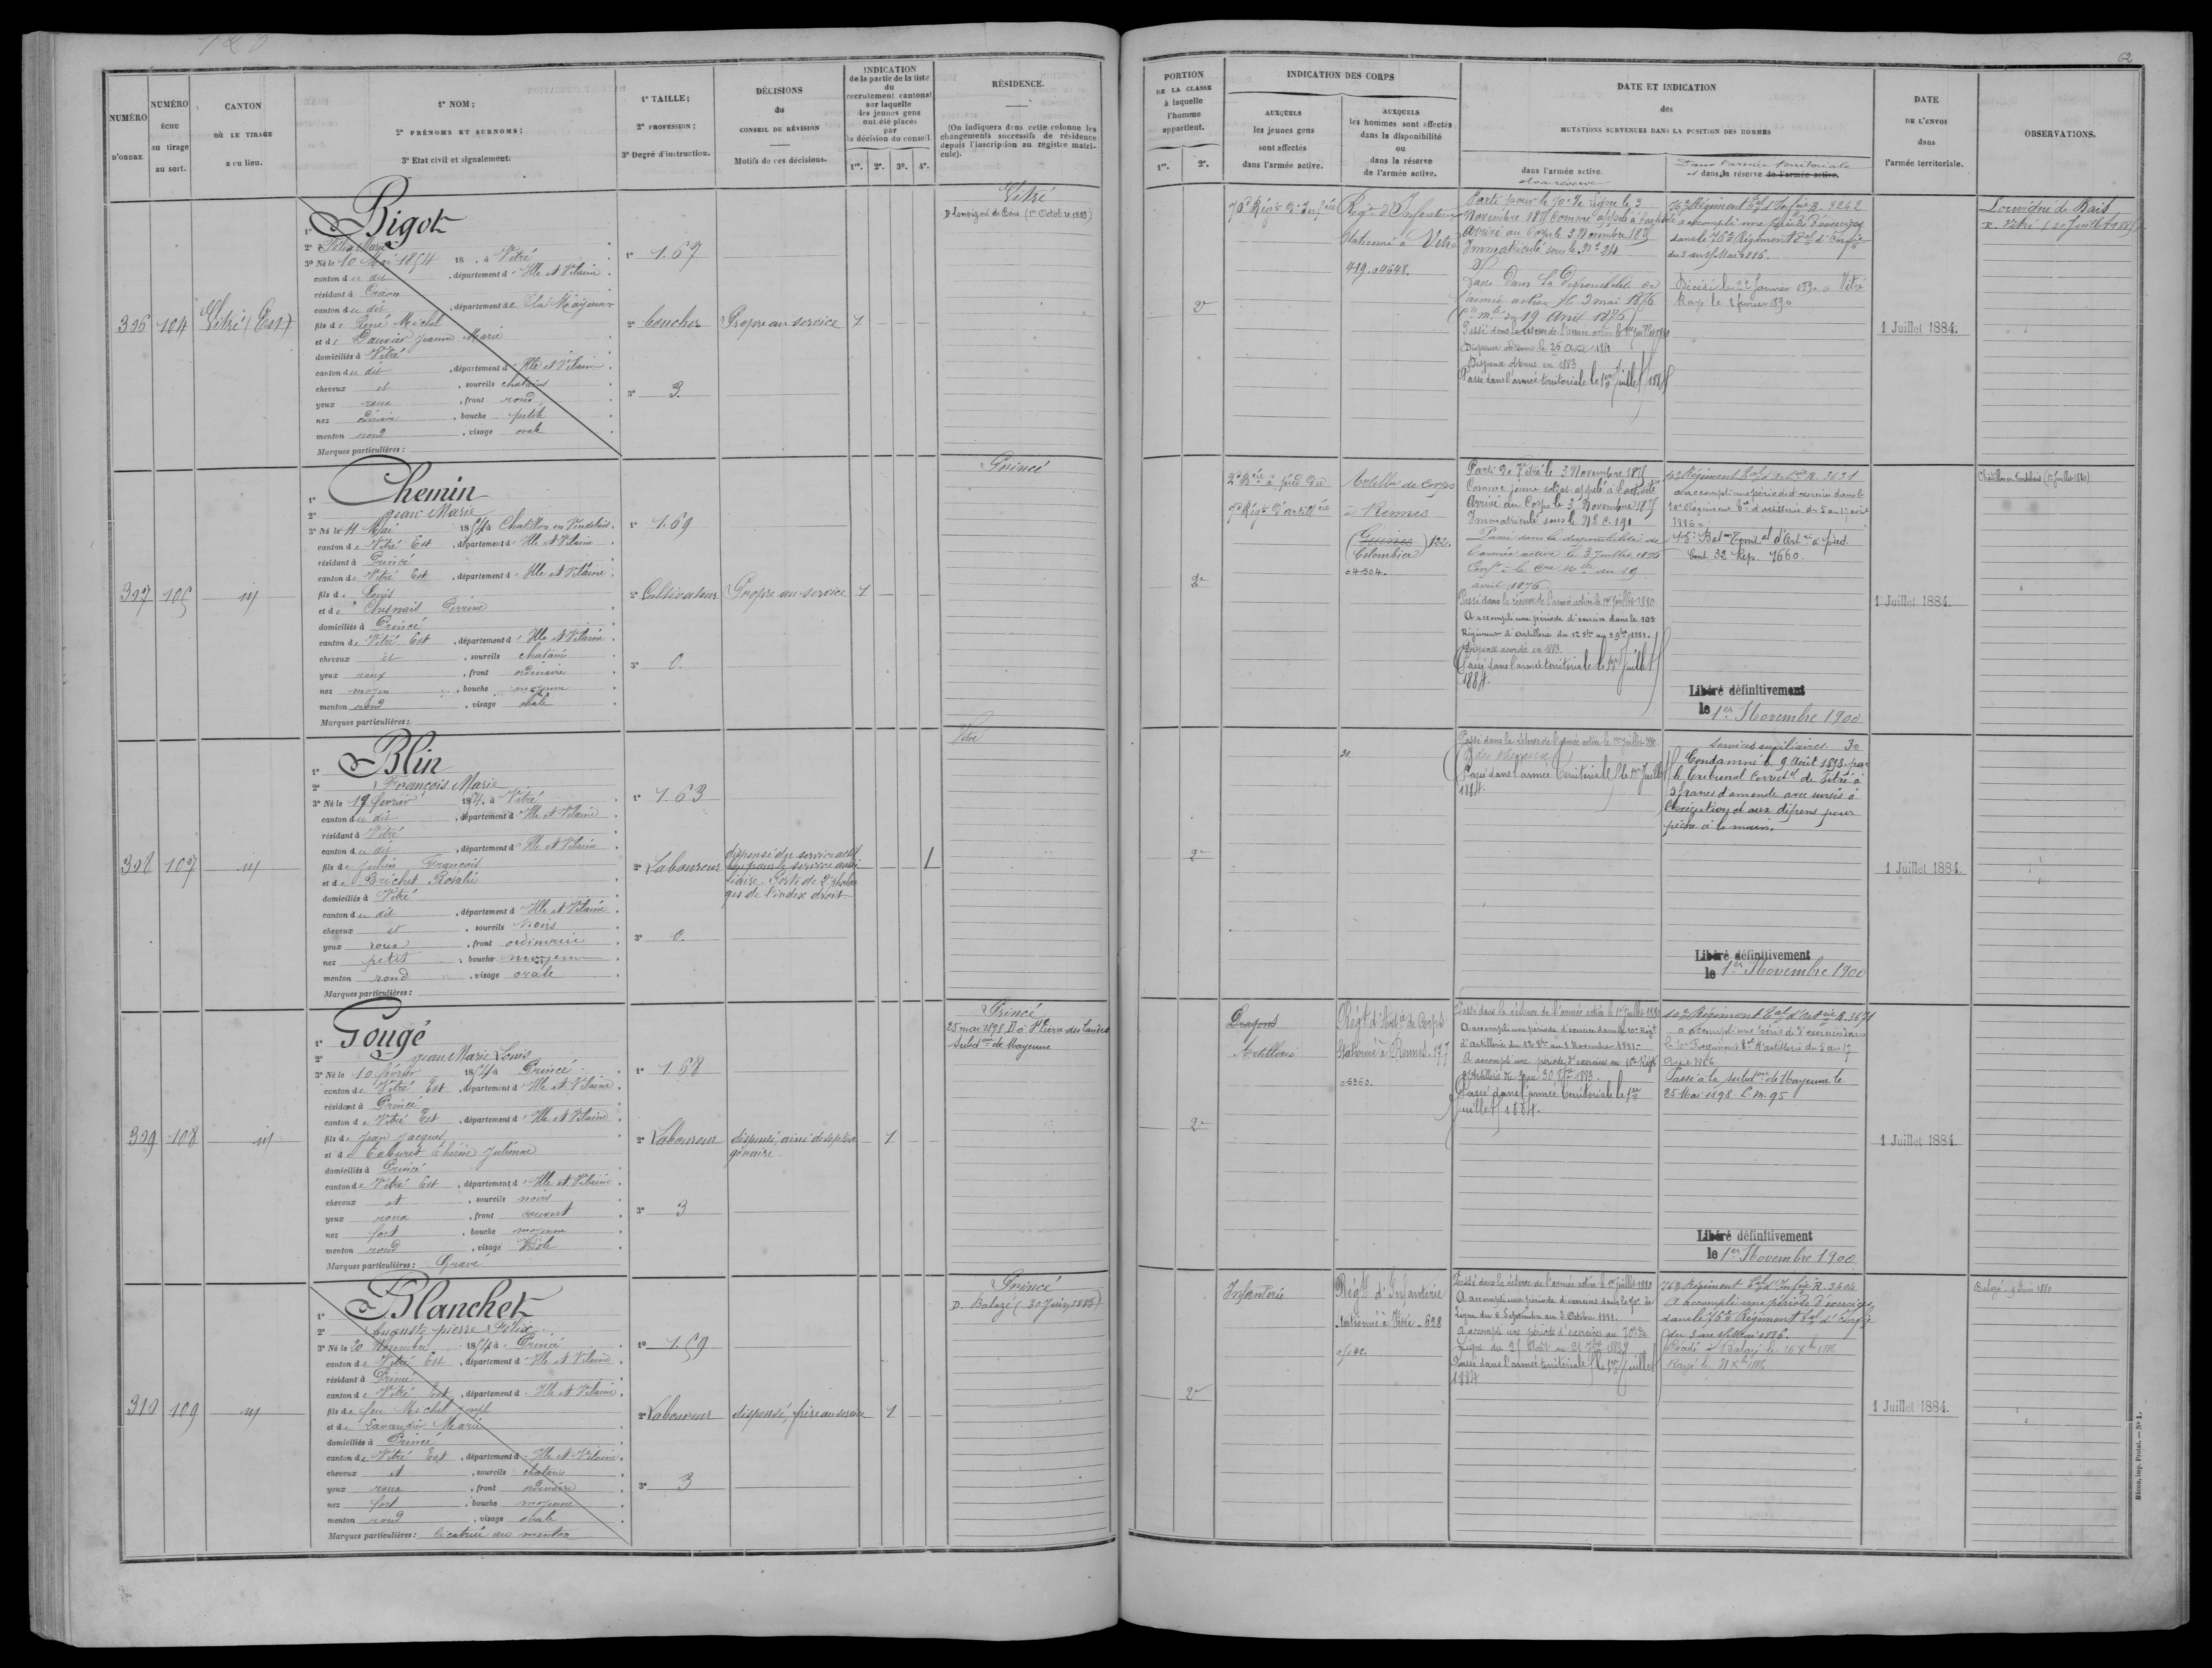 62
NUMÉRO D'ORDRE
NUMÉRO ÉCHU au tirage au sort.
CANTON OÙ LE TIRAGE a eu lieu.
1° NOM;
2° PRÉNOMS ET SURNOMS;
3° Etat civil et signalement.
1° TAILLE;
2° PROFESSION;
3° Degré d'instruction.
DÉCISIONS du CONSEIL DE RÉVISION
Motifs de ces décisions.
INDICATION
de la partie de la liste
du
recrutement cantonal
sur laquelle
les jeunes gens
ont été placés
par
la décision du conseil
1re. 2e. 3e. 4e.
RÉSIDENCE.
(On indiquera dans cette colonne les
changements successifs de résidence
depuis l'inscription au registre matri-
cule).
PORTION
DE LA CLASSE
à laquelle
l'homme
appartient.
1re. 2e.
INDICATION DES CORPS
AUXQUELS
les jeunes gens
sont affectés
dans l'armée active.
AUXQUELS
les hommes sont affectés
dans la disponibilité
ou
dans la réserve
de l'armée active.
DATE ET INDICATION
des
MUTATIONS SURVENUES DANS LA POSITION DES HOMMES
dans l'armée active
et sa réserve
Dans l'armée territoriale
et dans sa réserve de l'armée active.
DATE
DE L'ENVOI
dans
l'armée territoriale.
OBSERVATIONS.
306
104
Vitré (Est)
1° Bigot
2° Félix Marie
3° Né le 10 Mai 1854 18 , à Vitré
canton du dit , département d'Ille et Vilaine
résidant à Craon
canton du dit , département de la Mayenne
fils de René Michel
et de Dauvier Jeanne Marie
domiciliés à Vitré
canton du dit , département d'Ille et Vilaine
cheveux et , sourcils chatains
yeux roux , front rond
nez ordinaire , bouche petite
menton rond , visage ovale
Marques particulières :
1° 1.67
2° boucher
3° 3.
Propre au service
1
Vitré
2e
70e Rég.t d'Inf.ie
Rég.t d'Infanterie
Stationné à Vitré
419. 04648.
Parti pour le 70e de ligne le 3
Novembre 1875 comme appelé à l'activité
Arrivé au Corps le 3 Novembre 1875
Immatriculé sous le No
Passé dans la Disponibilité de
l'armée active le 3 mai 1876
du 19 Avril 1876)
Passé dans la réserve de l'armée active le 1er Juillet 1880
Dispense obtenue en 1883
Passé dans l'armée territoriale le 1er Juillet 1884
76e Régiment T.al d'Inf.ie R. 3242
A accompli une période d'exercices
dans le 76e Régiment T.al d'Inf.ie
Décédé le 22 Janvier 1890 à Vitré
Rayé le 2 février 1890
1 Juillet 1884.
Louvigné de Bais
307
105
id
1° Chemin
2° Jean Marie
3° Né le 11 Mai 1854 à Chatillon en Vendelais.
canton de Vitré Est , département d'Ille et Vilaine
résidant à Princé
canton de Vitré Est , département d'Ille et Vilaine
fils de Louis
et de Chesnais Perrine
domiciliés à Princé
canton de Vitré Est , département d'Ille et Vilaine
cheveux et , sourcils chatains
yeux roux , front ordinaire
nez moyen , bouche moyenne
menton rond , visage ovale
Marques particulières :
1° 1.69
2° Cultivateur
3° 0.
Propre au service
1
Princé
2e
Artill.ie de corps
à Rennes
122.
Colombier
04504.
Parti de Vitré le 3 Novembre 1875
Comme jeune soldat appelé à l'activité
Arrivé au Corps le 3 Novembre 1875
Immatriculé sous le No C. 191
Passé dans la disponibilité de
l'armée active le 3 Juillet 1876
avril 1876
Passé dans la réserve de l'armée active le 1er Juillet 1880
A accompli une période d'exercice dans le 10e
Régiment d'artillerie
Dispense accordée en 1883
Passé dans l'armée territoriale le 1er Juillet
1884.
10e Régiment T.al d'Art.ie R. 3631
a accompli une période d'exercices dans le
10e Régiment T.al d'artillerie du 5 au 17 avril
1886
Cont. 32 Rep. 1660.
Libéré définitivement
le 1er Novembre 1900
1 Juillet 1884.
Chatillon en Vendelais (1er Juillet 1880)
308
107
id
1° Blin
2° François Marie
3° Né le 12 février 1854. à Vitré
canton du dit , département d'Ille et Vilaine
résidant à Vitré
canton du dit , département d'Ille et Vilaine
fils de Julien François
et de Brichet Rosalie
domiciliés à Vitré
canton du dit , département d'Ille et Vilaine
cheveux et , sourcils noirs
yeux roux , front ordinaire
nez petit , bouche moyenne
menton rond , visage ovale
Marques particulières :
1° 1.63
2° Laboureur
3° 0.
dispensé du service actif
bon pour le service auxi-
liaire. Perte de 2 phalan-
ges de l'index droit
1
Vitré
2e
30.
Passé dans la réserve de l'armée active le 1er Juillet 1880.
Passé dans l'armée territoriale le 1er Juillet
1884.
Services auxiliaires. 30
Condamné le 9 Août 1893 par
le tribunal correct.el de Vitré à
2 francs d'amende avec sursis à
l'exécution et aux dépens pour
pêche à la main.
Libéré définitivement
le 1er Novembre 1900
1 Juillet 1884.
309
108
id
1° Gougé
2° Jean Marie Louis
3° Né le 10 février 1854 à Princé
canton de Vitré Est , département d'Ille et Vilaine
résidant à Princé
canton de Vitré Est , département d'Ille et Vilaine
fils de Jean Jacques
et de Cabaret Thérèse Julienne
domiciliés à Princé
canton de Vitré Est , département d'Ille et Vilaine
cheveux et , sourcils noirs
yeux roux , front couvert
nez fort , bouche moyenne
menton rond , visage ovale
Marques particulières : Gravé
1° 1.68
2° Laboureur
3° 3
dispensé, ainé de septua
génaire.
1
Princé
25 mai 1898. D à St Pierre des Landes
Subd.on de Mayenne
2e
Dragons
Artillerie
Rég.t d'Art.ie de Corps
Stationné à Rennes. 177
05360.
Passé dans la réserve de l'armée active le 1er Juillet 1880
A accompli une période d'exercices dans le 10e Rég.t
d'artillerie
A accompli une période d'exercices au 10e Rég.t
d'Artillerie du 3 au 30 8bre 1883.
Passé dans l'armée territoriale le 1er
Juillet 1884.
10e Régiment T.al d'Art.ie R. 3671
a accompli une période d'exercices dans
le 10e Régiment T.al d'artillerie du 5 au 17
Avril 1886
Passé à la subd.on de Mayenne le
25 Mai 1898 C. M. 95
Libéré définitivement
le 1er Novembre 1900
1 Juillet 1884.
310
109
id
1° Blanchet
2° Auguste pierre Félix
3° Né le 20 Novembre 1854 à Princé
canton de Vitré Est , département d'Ille et Vilaine
résidant à Princé
canton de Vitré Est , département d'Ille et Vilaine
fils de feu Michel Joseph
et de Lavandier Marie
domiciliés à Princé
canton de Vitré Est , département d'Ille et Vilaine
cheveux et , sourcils chatains
yeux roux , front ordinaire
nez fort , bouche moyenne
menton rond , visage ovale
Marques particulières : Cicatrice au menton
1° 1.59
2° Laboureur
3° 3
dispensé, frère au service
1
Princé
D. Balazé (30 Juin 1883)
2e
Infanterie
Rég.t d'Infanterie
stationné à Vitré - 628
Passé dans la réserve de l'armée active le 1er juillet 1880
A accompli une période d'exercices dans le 70e de
Ligne du 6 Septembre au 3 Octobre 1881.
A accompli une période d'exercices au 70e de
Passé dans l'armée territoriale le 1er Juillet
1884
76e Régiment T.al d'Inf.ie R. 3404
A accompli une période d'exercices
dans le 76e Régiment T.al d'Inf.ie
Décédé à Balazé le 16 Xbre 1886
Rayé le 31 Xbre 1886
1 Juillet 1884.
Balazé 9 Juin 1880